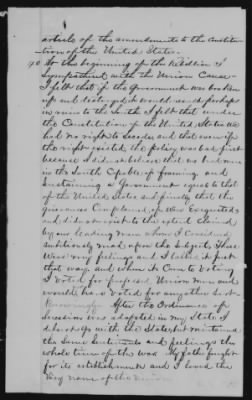 article of the amendments to the Constitu
tion of the United States.
40 At the beginning of the Rebellion I
Sympathized with the Union Cause
I felt that if the Government was broken
up and destroyed it would and perhaps
in ruin to the whole I felt that under
the Constitution of the United States we
had no right to secede and that even if
the right existed the policy was bad first
because I did not believe that we had men
in the South Capable of framing and
Sustaining a Government equal to that
of the United States and finally that the
grievances Complained of were Exaggerated
and did not exist to the extent claimed
by our leading men whom I considered
ambitiously mad upon the Subject. These
were my feelings and I talked it just
that way and when it Came to Voting
I Voted for pure and Union men and
would have Voted for any other sort
Knowingly. After the Ordinance of
Secession was adopted in my State I
did not go with the State but maintained
the Same Sentiments and feelings the
whole time of the war. My father fought
for its establishment and I loved the
Very name of the Union